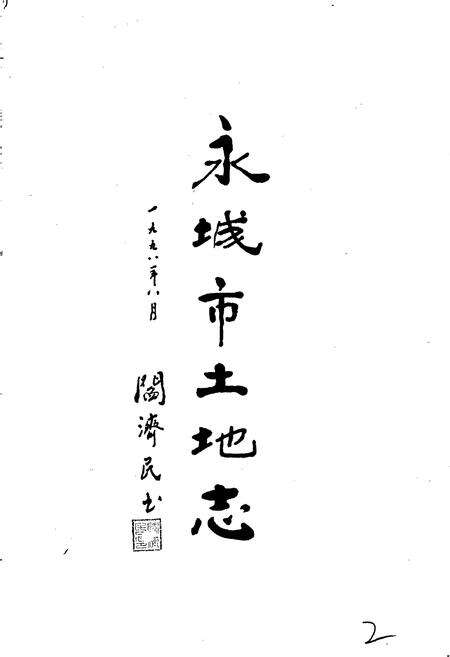 永城市土地志
一九九八年八月
阎濟民书
2